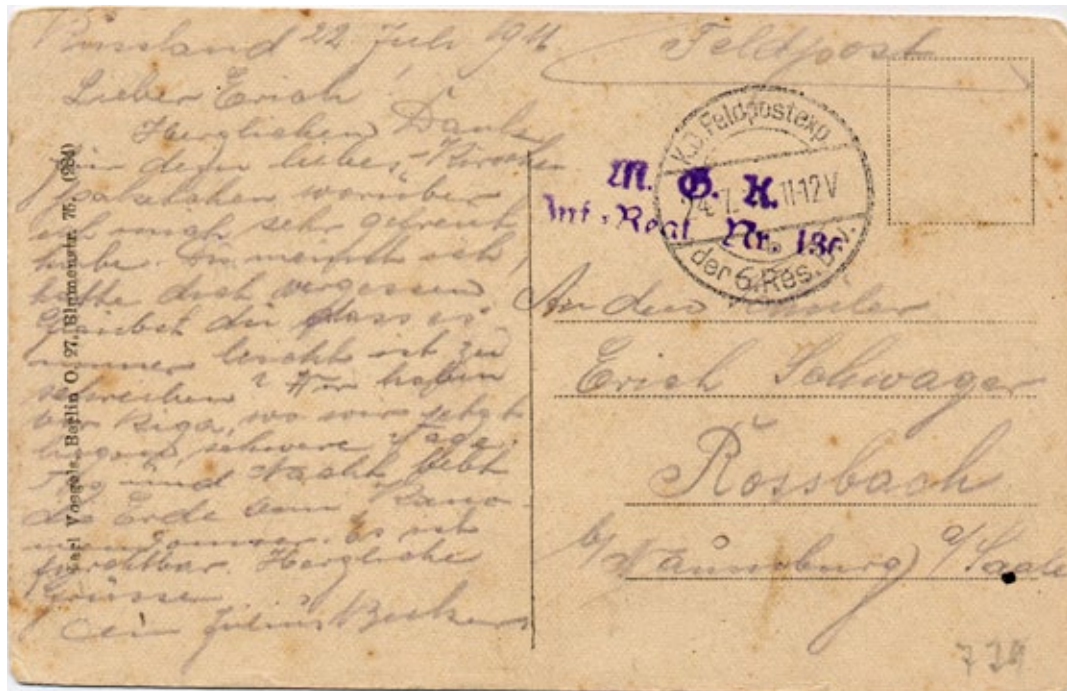 Russland 22 Juli 1916
Feldpost
Lieber Erich!
Herzlichen Dank
für dein liebes
worüber
ich mich sehr gefreut
habe. Du meinst ich
hätte doch vergessen
Glaubst du dass es
immer leicht ist zu
schreiben? Wir haben
vor Riga, wo wir jetzt
liegen, schwere Tage.
Tag und Nacht bebt
die Erde vom Kano-
nendonner. Es ist
furchtbar. Herzliche
Grüsse
Julius Beckers
Karl Voegels, Berlin O. 27, Blumenstr. 75. (284)
K.D. Feldpostexp.
11-12V
der 6. Res. Div.
M. G. K.
Inf.-Regt. Nr. 136
An den Schüler
Erich Schwager
Rossbach
b/Naumburg) a/Saale
729